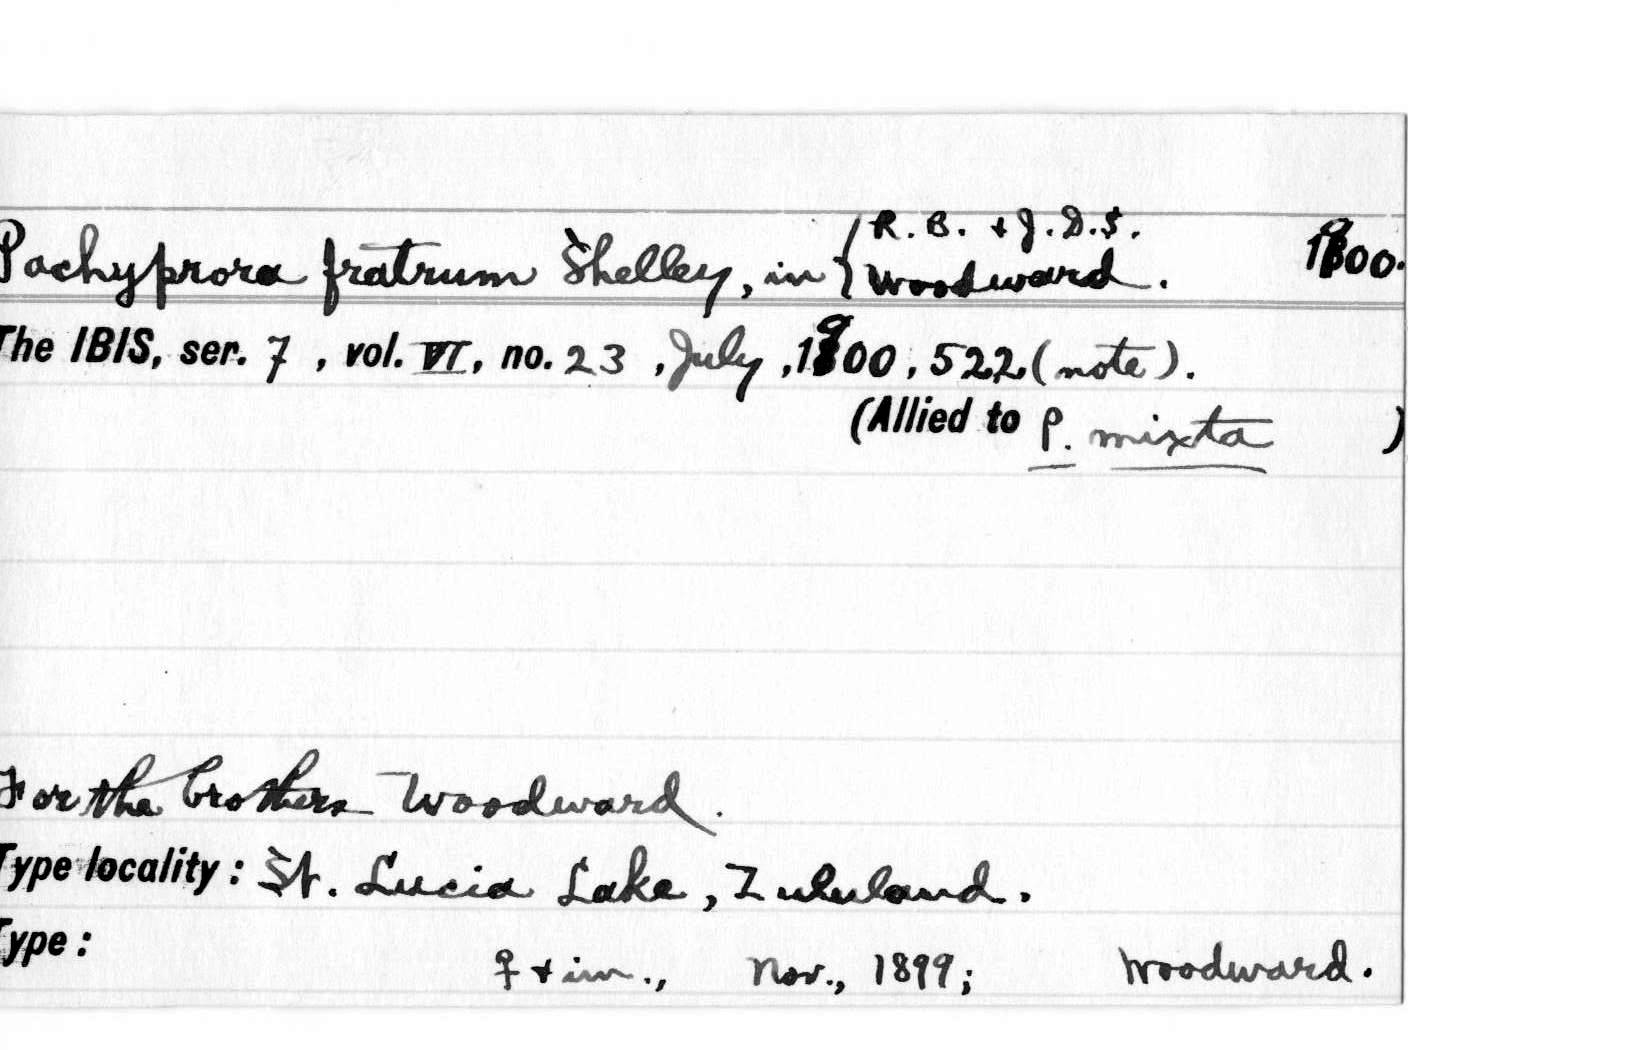 Pachyprora fratrum Shelley, in { R. B. & J. D. S. Woodward. 1900.
The IBIS, ser. 7, vol. VI, no. 23, July, 1900, 522 (note).
(Allied to P. mixta )
For the brothers Woodward.
Type locality: St. Lucia Lake, Zululand.
Type:
♀ & im., Nov., 1899; Woodward.